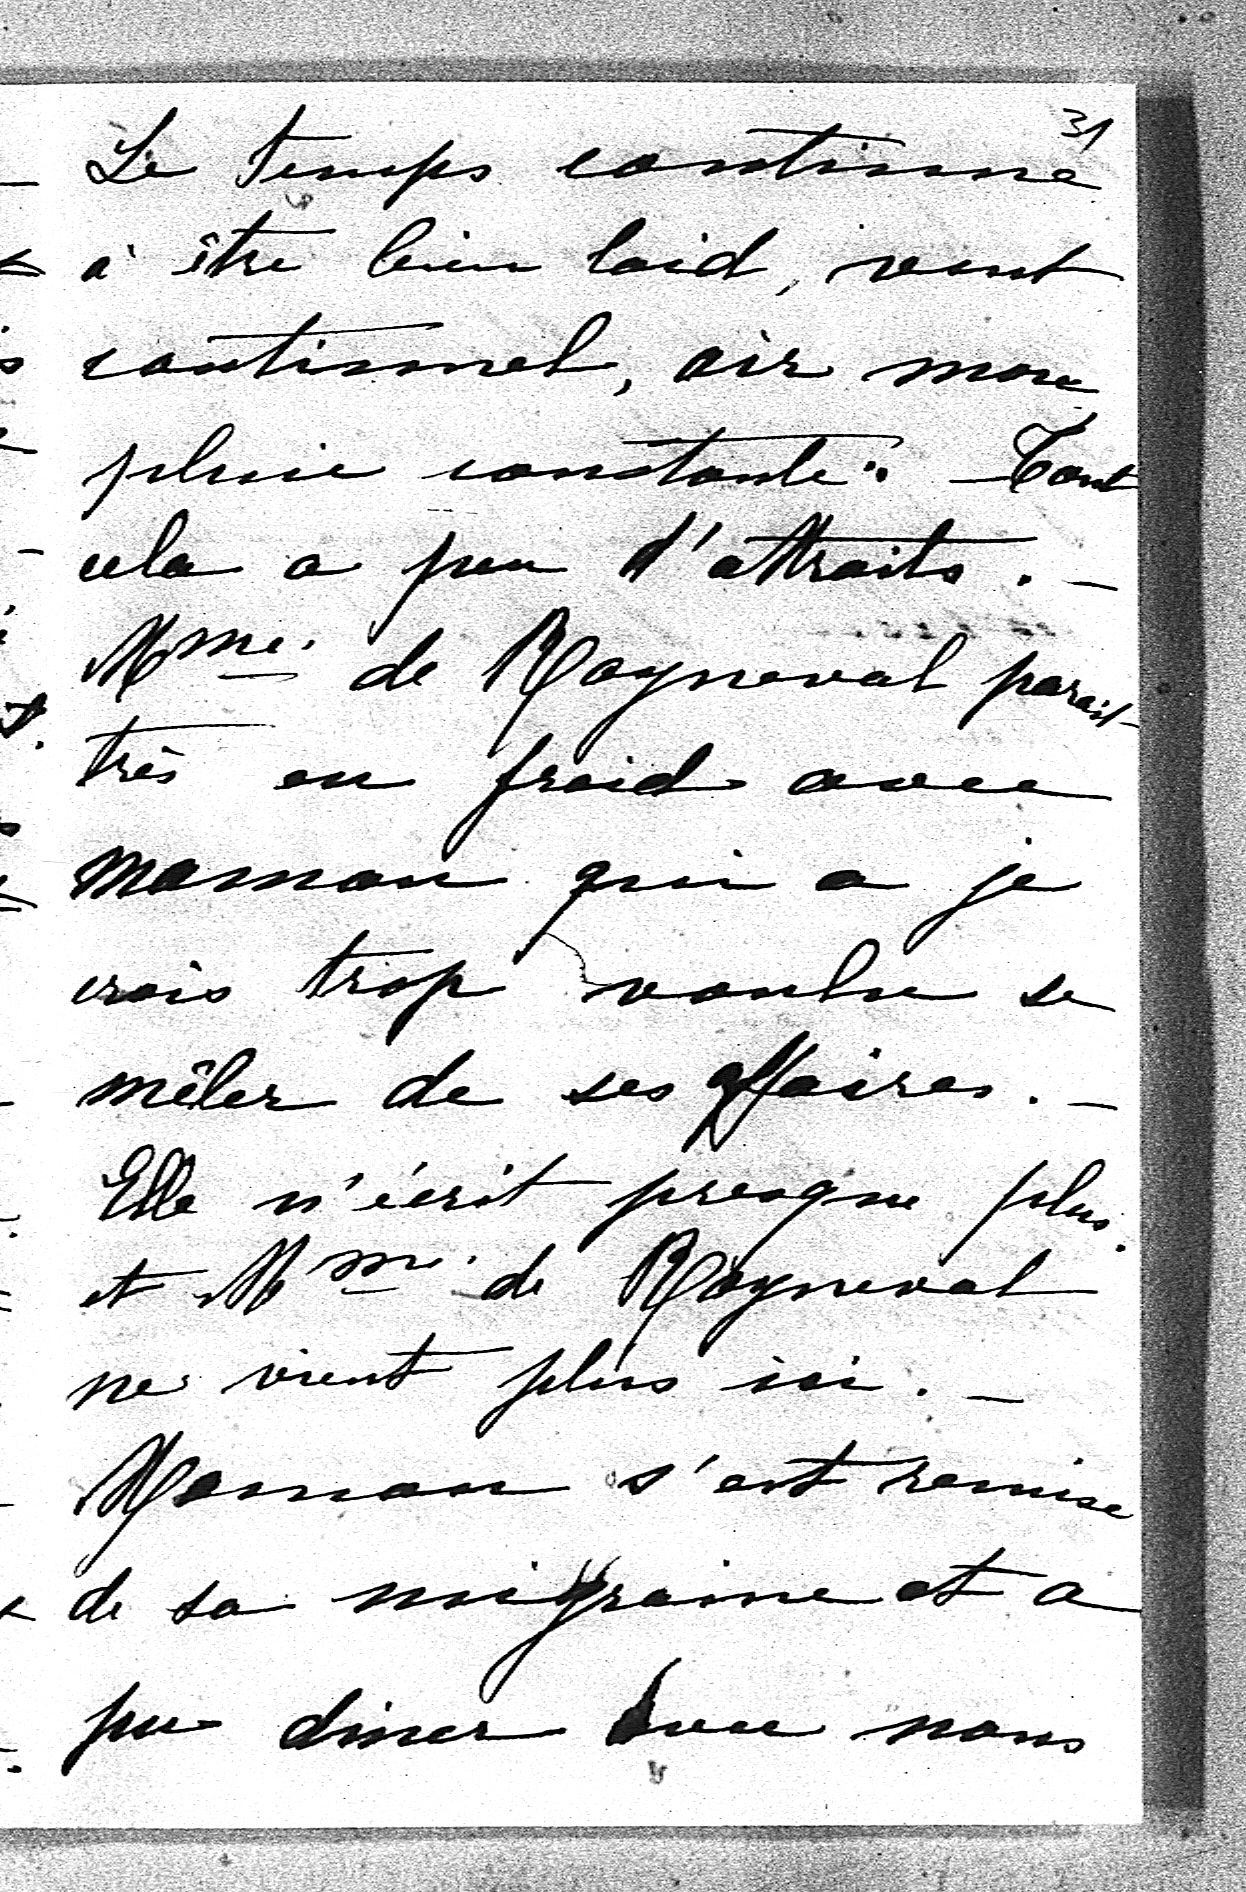 31
Le temps continue
à être bien laid, vent
continuel, air mou
pluie constante. - Tout
cela a peu d'attraits. -
Mme. de Rayneval parait
très en froid avec
maman qui a je
crois trop voulu se
mêler de ses affaires. -
Elle n'écrit presque plus.
et Mme. de Rayneval
ne vient plus ici. -
Maman s'est remise
de sa migraine et a
pu diner avec nous